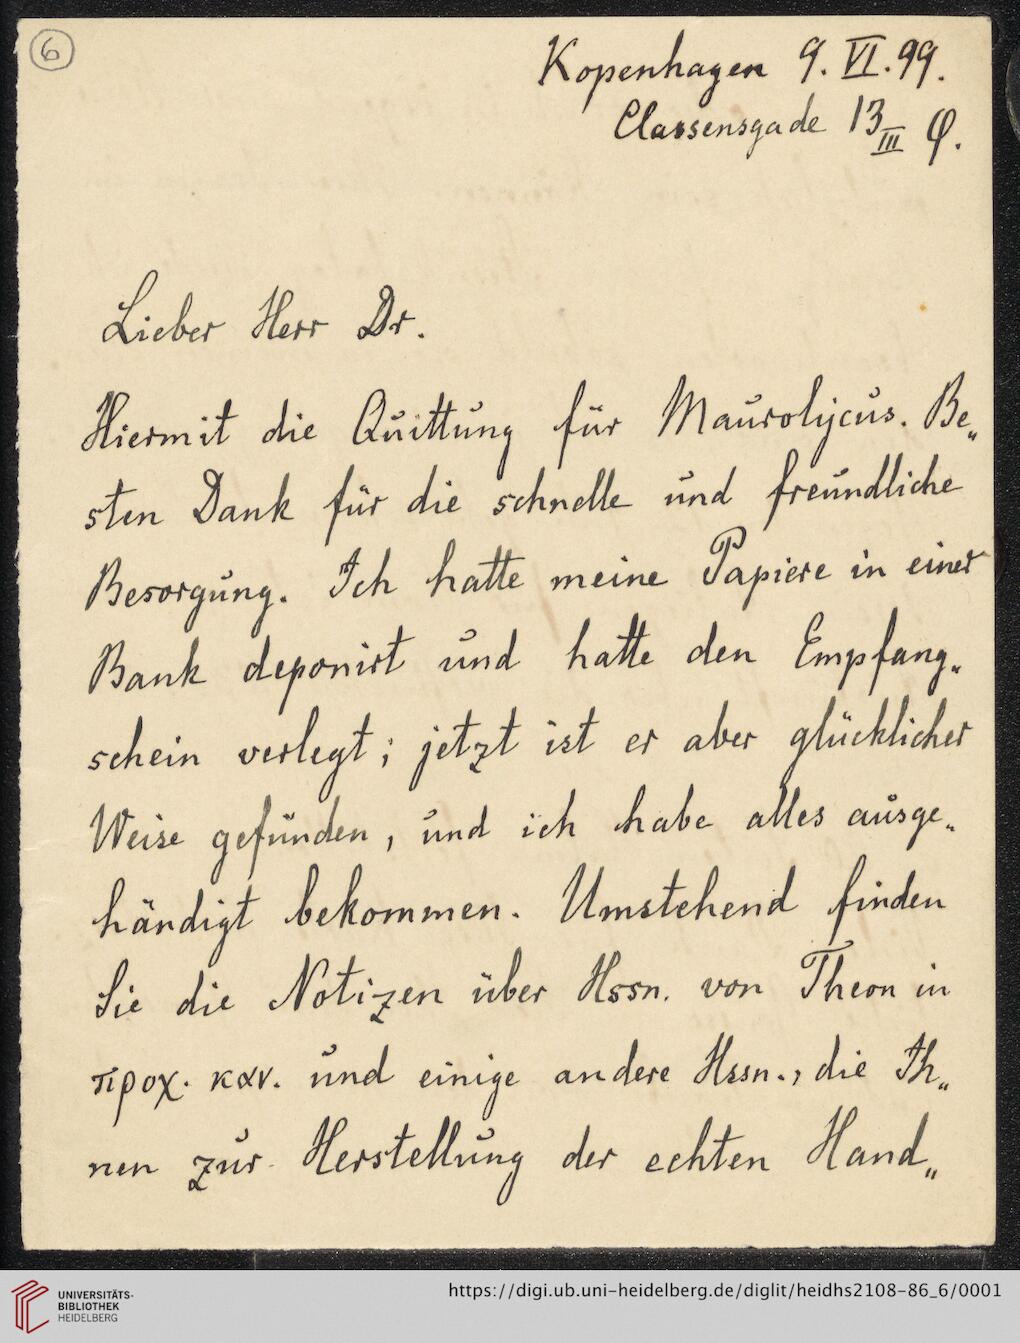 6
Kopenhagen 9. VI. 99.
Classensgade 13 III Ø.
Lieber Herr Dr.
Hiermit die Quittung für Maurolycus. Be„
sten Dank für die schnelle und freundliche
Besorgung. Ich hatte meine Papiere in einer
Bank deponirt und hatte den Empfang„
schein verlegt; jetzt ist er aber glücklicher
Weise gefunden, und ich habe alles ausge„
händigt bekommen. Umstehend finden
Sie die Notizen über Hssn. von Theon in
προχ. καν. und einige andere Hssn., die Ih„
nen zur Herstellung der echten Hand„
UNIVERSITÄTS-
BIBLIOTHEK
HEIDELBERG
https://digi.ub.uni-heidelberg.de/diglit/heidhs2108-86_6/0001